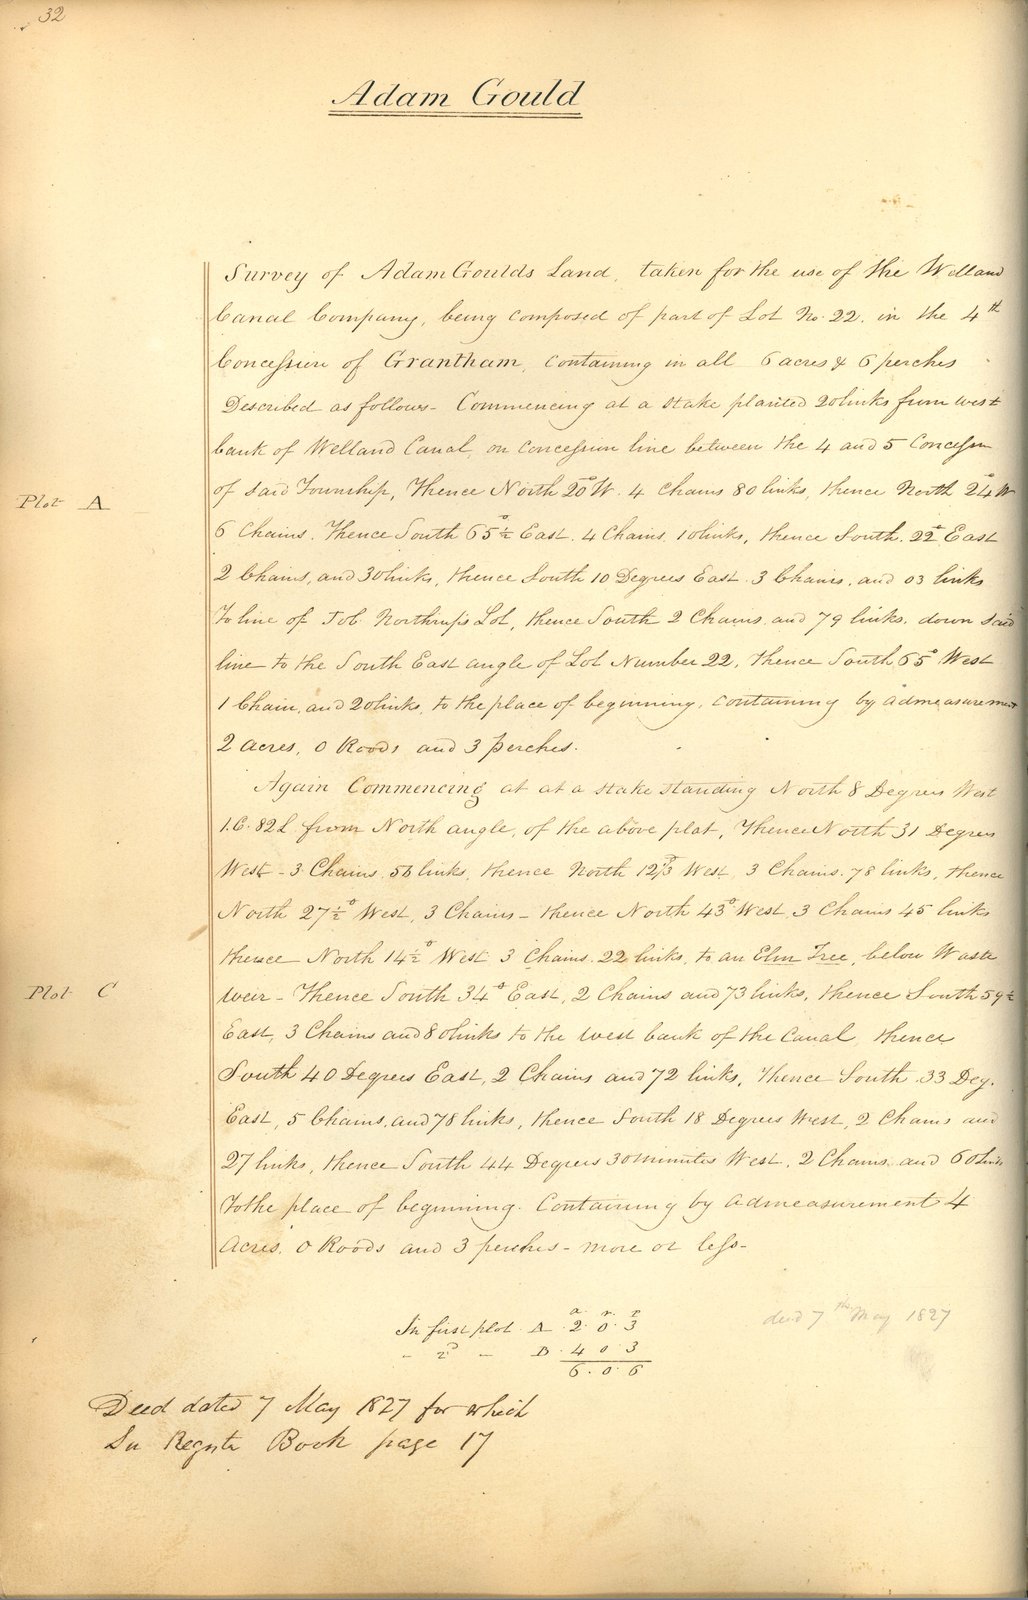 32
Adam Gould
Survey of Adam Goulds Land, taken for the use of the Welland
Canal Company, being composed of part of Lot No. 22. in the 4th
Concession of Grantham, Containing in all 6 acres & 6 perches
Described as follows - Commencing at a stake planted 20 links from west
bank of Welland Canal, on concession line between the 4 and 5 Concession
Plot A
of said Township, Thence North 20° W. 4 Chains 80 links, thence North 24° W
6 Chains. Thence South 65½° East. 4 Chains. 10 links, thence South. 22° East
2 Chains, and 30 links, thence South 10 Degrees East. 3 Chains, and 03 links
To line of Job Northrups Lot, thence South 2 Chains. and 79 links. down said
line to the South East angle of Lot Number 22, thence South 65° West
1 Chain, and 20 links, to the place of beginning, containing by admeasurement
2 acres, 0 Roods and 3 perches.
Again Commencing at at a stake standing North 8 Degrees West
1.C. 82 L. from North angle, of the above plat, Thence North 31 Degrees
West - 3 Chains. 50 links, thence North 12 West, 3 Chains. 78 links, thence
North 27½° West, 3 Chains - thence North 43° West, 3 Chains 45 links
thence North 14½° West 3 Chains. 22 links, to an Elm Tree, below Waste
Plot C
weir - Thence South 34° East, 2 Chains and 73 links, thence South 59
East, 3 Chains and 80 links to the west bank of the Canal, thence
South 40 Degrees East, 2 Chains and 72 links, Thence South 33 Deg.
East, 5 Chains, and 78 links, thence South 18 Degrees West, 2 Chains and
27 links, thence South 44 Degrees 30 minutes West, 2 Chains and 60 links
To the place of beginning. Containing by admeasurement 4
Acres. 0 Roods and 3 perches - more or less -
a. r. p
In first plot A 2. 0. 3
- 2D - B. 4 0 3
6. 0. 6
deed 7th May 1827
Deed dated 7 May 1827 for which
See Registr Book page 17